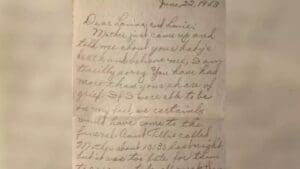 June 22, 1953
Dear Louise and Louie:
Mother just came up and
told me about your baby's
death and believe me, I am
thrilly sorry. You have had
more than your share of
grief. If I were able to be
on my feet, we certainly
would have come to the
funeral. Aunt Tillie called
Mother about 10:30 last night
but it was too late for them